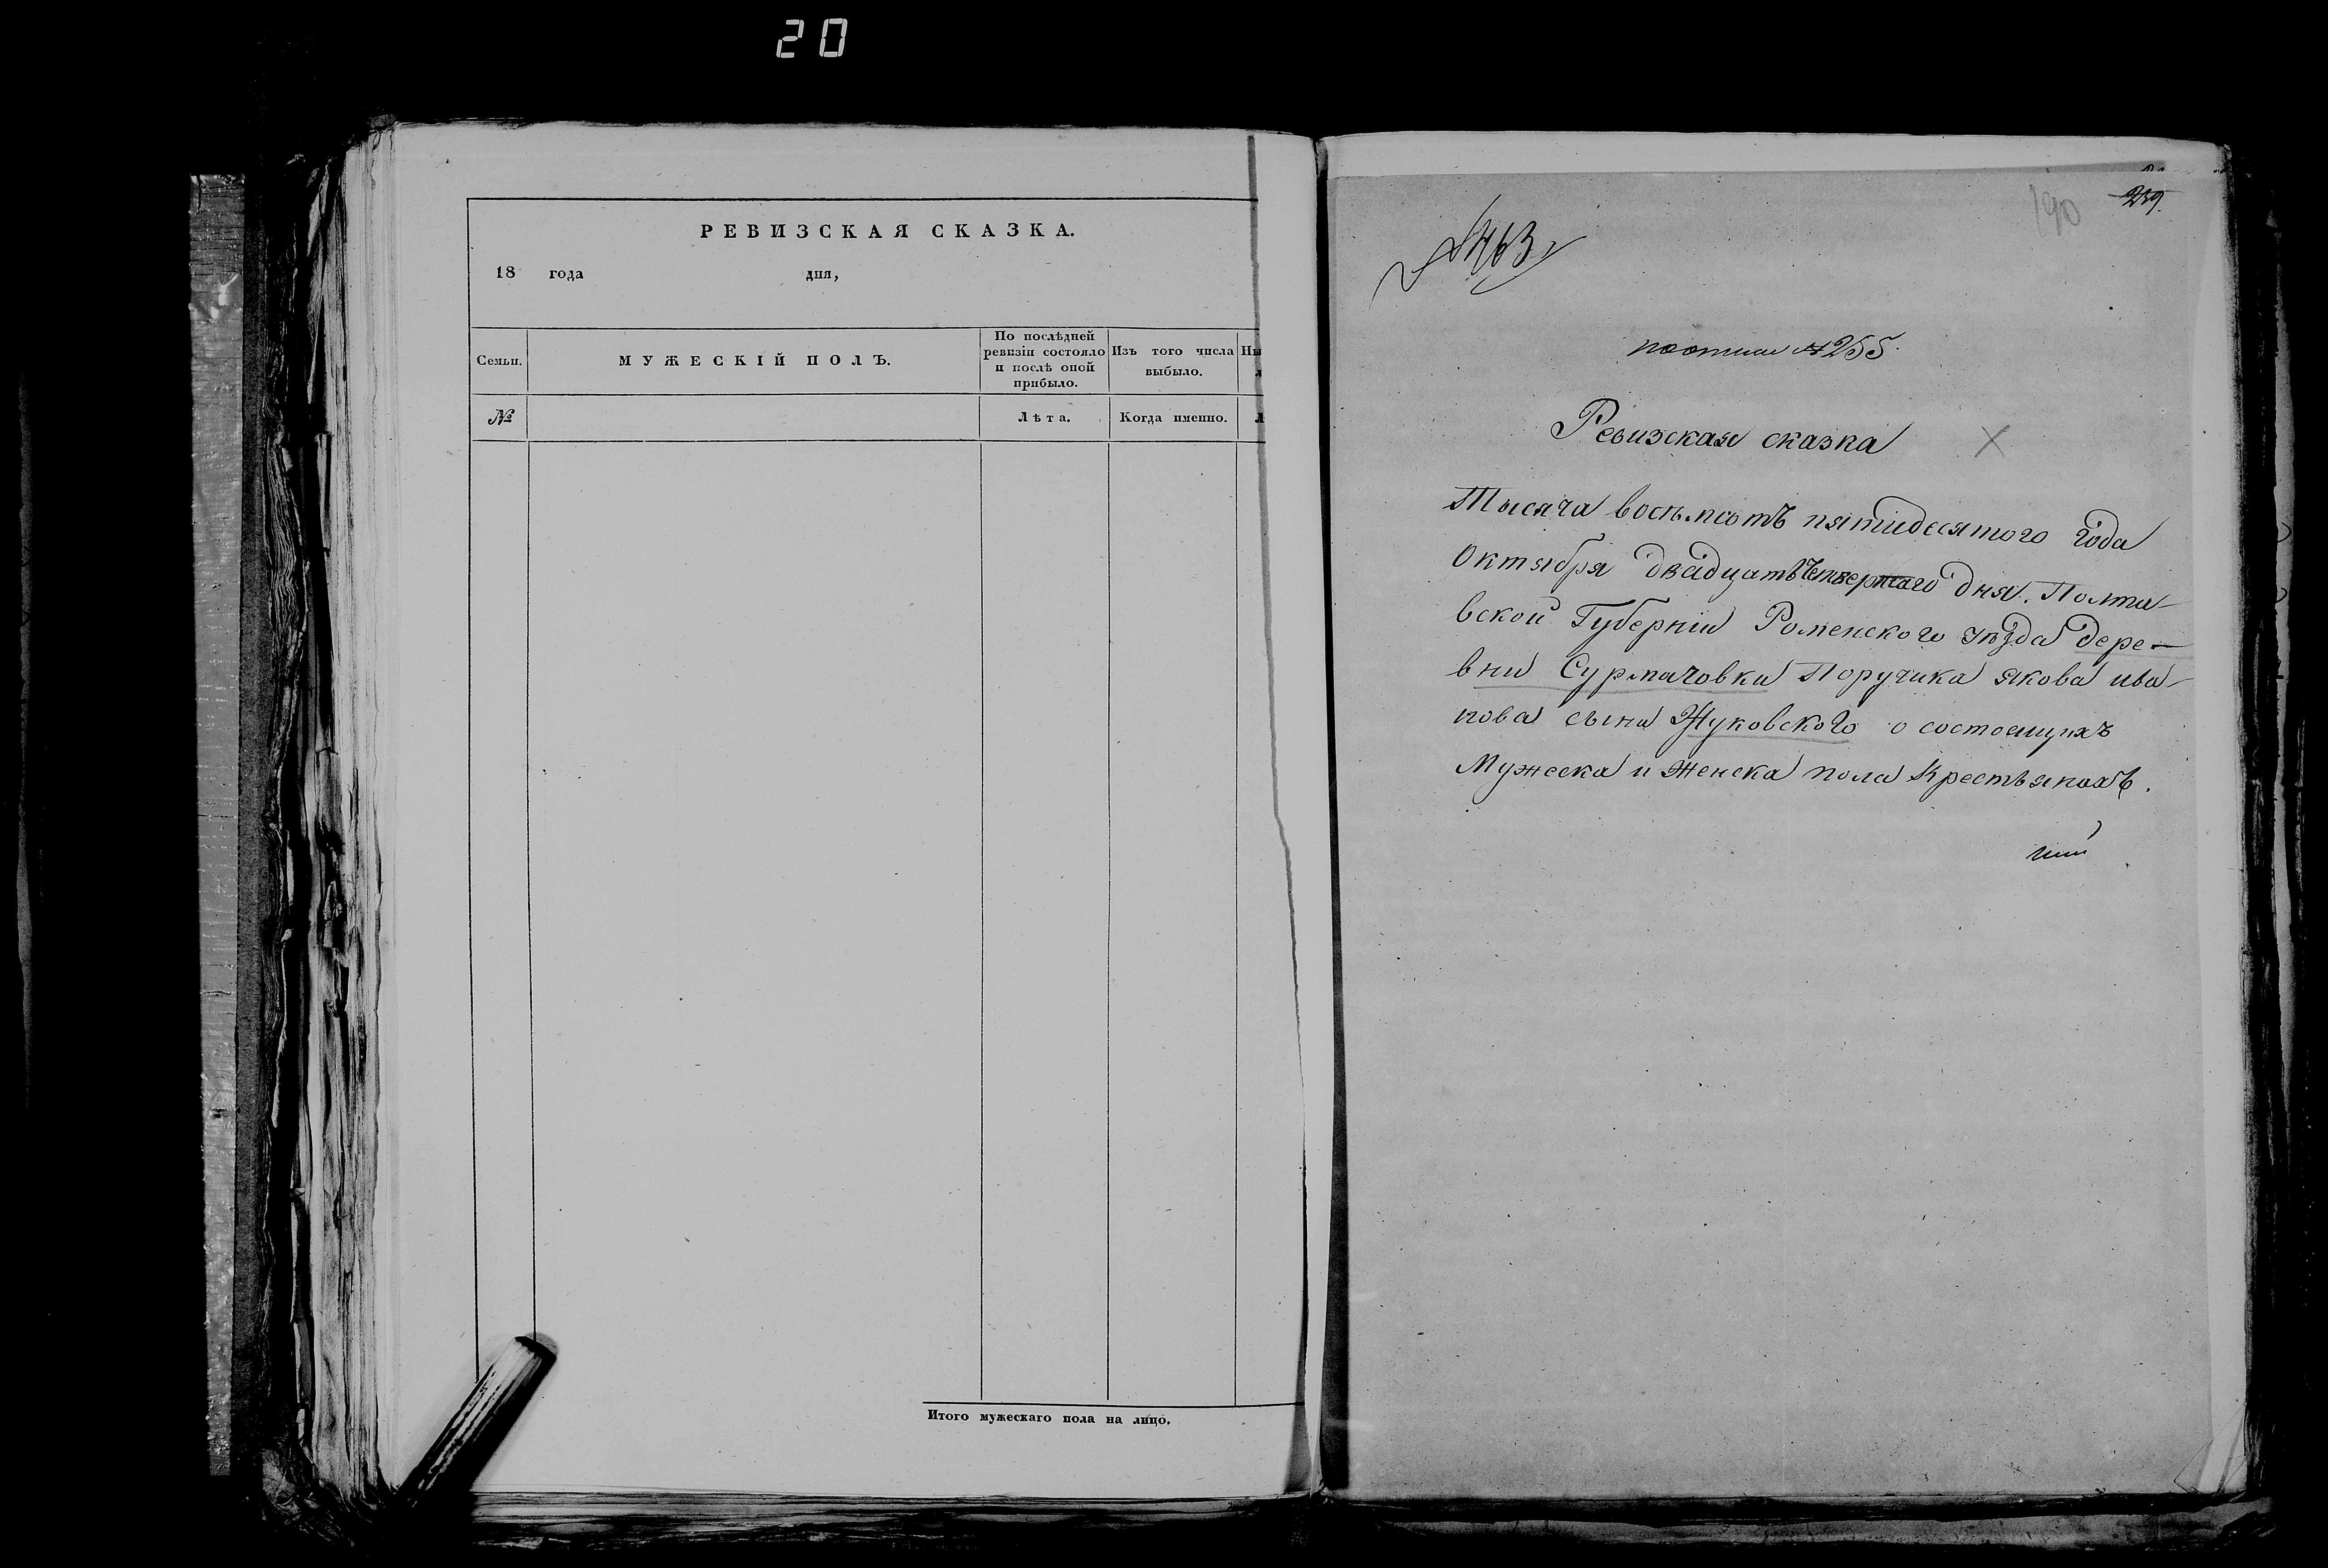 20
РЕВИЗСКАЯ СКАЗКА.
18 года дня,
Семьи.
МУЖЕСКІЙ ПОЛЪ.
По послѣдней
ревизіи состояло
и послѣ оной
прибыло.
Изъ того числа
выбыло.
Ны
№
Лѣта.
Когда именно.
Л
Итого мужескаго пола на лицо.
190
239.
№463
№255.
Ревизская сказка
Тысяча восьмсотъ пятидесятого года
Октября двадцать четвертаго дня. Полта-
вской Губерніи Роменского уѣзда дере-
вни Сурмачовки Поручика Якова Ива-
нова сына Жуковского о состоящихъ
Мужеска и Женска пола Крестьянахъ.